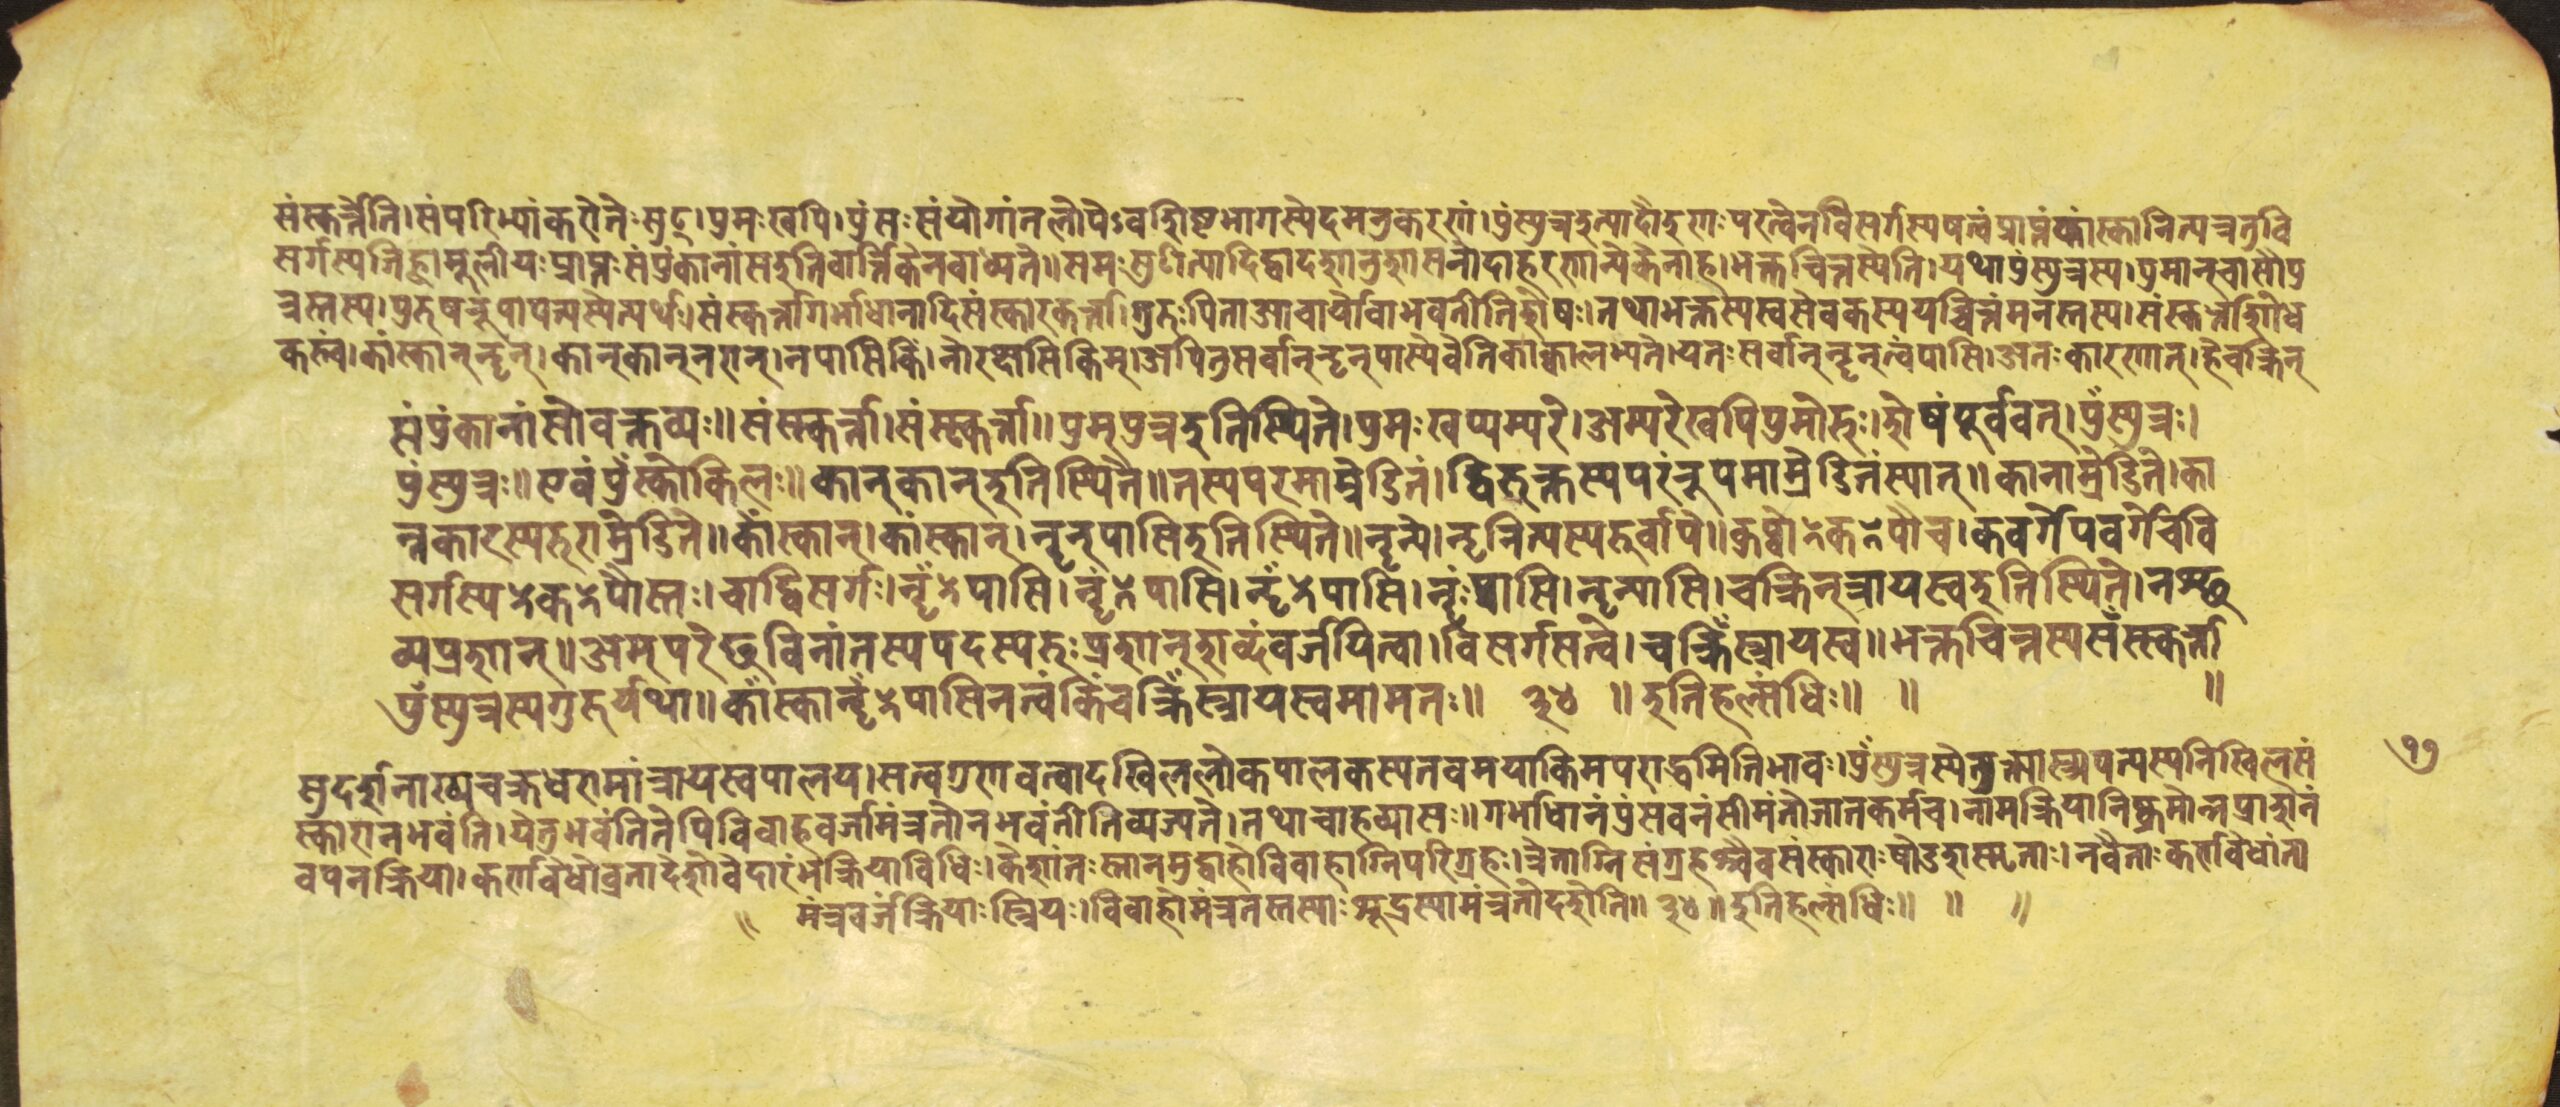 संस्कर्त्तेति।संपरिभ्यांकरोतेःसुट्।पुमःखपि।पुंसःसंयोगांतलोपेऽवशिष्टभागस्येदमनुकरणं।पुंस्पुत्रइत्यादौइणःपरत्वेनविसर्गस्यषत्वंप्राप्तंकांस्कानित्यत्रतुवि
सर्गस्यजिह्वामूलीयःप्राप्तःसंपुंकानांसइतिवार्त्तिकेनबाध्यते॥समःसुटीत्यादिद्वादशानुशासनोदाहरणान्येकेनाह।भक्तचित्तस्येति।यथापुंस्पुत्रस्य।पुमान्चासौपु
त्रस्तस्य।पुरुषरूपापत्यस्येत्यर्थः।संस्कर्त्तागर्भाधानादिसंस्कारकर्त्ता।गुरुःपिताआचार्योवाभवतीतिशेषः।तथाभक्तस्यस्वसेवकस्ययच्चित्तंमनस्तस्य।संस्कर्त्ताशोध
कस्त्वं।कांस्कान्नॄन्।कान्कान्नरान्।नपासिकिं।नोरक्षसिकिम्।अपितुसर्वान्नॄन्पास्येवेतिकाक्वालभ्यते।यतःसर्वान्नॄन्त्वंपासि।अतःकारणात्।हेचक्रिन्
संपुंकानांसोवक्तव्यः॥संस्स्कर्त्ता।संस्स्कर्त्ता॥पुम्पुत्रइतिस्थिते।पुमःखप्यम्परे।अम्परेखपिपुमोरुः।शेषंपूर्ववत्।पुँस्पुत्रः।
पुंस्पुत्रः॥एवंपुँस्कोकिलः॥कान्कान्इतिस्थिते॥तस्यपरमाम्रेडितं।द्विरुक्तस्यपरंरूपमाम्रेडितंस्यात्॥कानाम्रेडिते।का
न्नकारस्यरुराम्रेडिते॥काँस्कान्।कांस्कान्।नॄन्पासिइतिस्थिते॥नॄन्पे।नॄनित्यस्यरुर्वापे॥कुप्वोःकपौच।कवर्गेपवर्गेचवि
सर्गस्यकपौस्तः।चाद्विसर्गः।नॄँपासि।नॄंपासि।नॄँःपासि।नॄंःपासि।नॄन्पासि।चक्रिन्त्रायस्वइतिस्थिते।नश्छ
व्यप्रशान्॥अम्परेछविनांतस्यपदस्यरुःप्रशान्शब्दंवर्जयित्वा।विसर्गसत्वे।चक्रिँस्त्रायस्व॥भक्तचित्तस्यसँस्स्कर्त्ता
पुँस्पुत्रस्यगुरुर्यथा॥काँस्कान्नॄँपासिनत्वंकिंचक्रिँस्त्रायस्वमामतः॥ ॥इतिहल्संधिः॥ ॥ ॥
सुदर्शनाख्यचक्रधरमांत्रायस्वपालय।सत्वगुणवत्वादखिललोकपालकस्यतवमयाकिमपराद्धमितिभावः।पुंस्पुत्रस्येत्युक्त्यास्त्र्यपत्यस्यनिखिलसं
स्कारानभवंति।येतुभवंतितेपिविवाहवर्जामंत्रतोनभवंतीतिव्यज्यते।तथाचाहव्यासः॥गर्भाधानंपुंसवनंसीमंतोजातकर्मच।नामक्रियानिष्क्रमोन्नप्राशनं
वपनक्रिया।कर्णवेधोव्रतादेशोवेदारंभक्रियाविधिः।केशांतःस्नानमुद्वाहोविवाहाग्निपरिग्रहः।त्रेताग्निसंग्रहश्चैवसंस्काराःषोडशस्मृताः।नवैताःकर्णवेधांता
मंत्रवर्जंक्रियाःस्त्रियः।विवाहोमंत्रतस्तस्याःशूद्रस्यामंत्रतोदशेति॥ ॥इतिहल्संधिः॥ ॥ ॥
१७